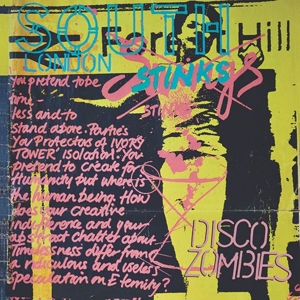 SOUTH
LONDON
Hill
STINKS
You pretend to be
time
less and to
stand above. You're
You Protectors of IVORY
TOWER isolation. You
pretend to create for
Humanity but where is
the human being. How
does your creative
indifference and your
abstract chatter about
Timelessness differ from
a ridiculous and useless
speculation on Eternity?
DISCO
ZOMBIES